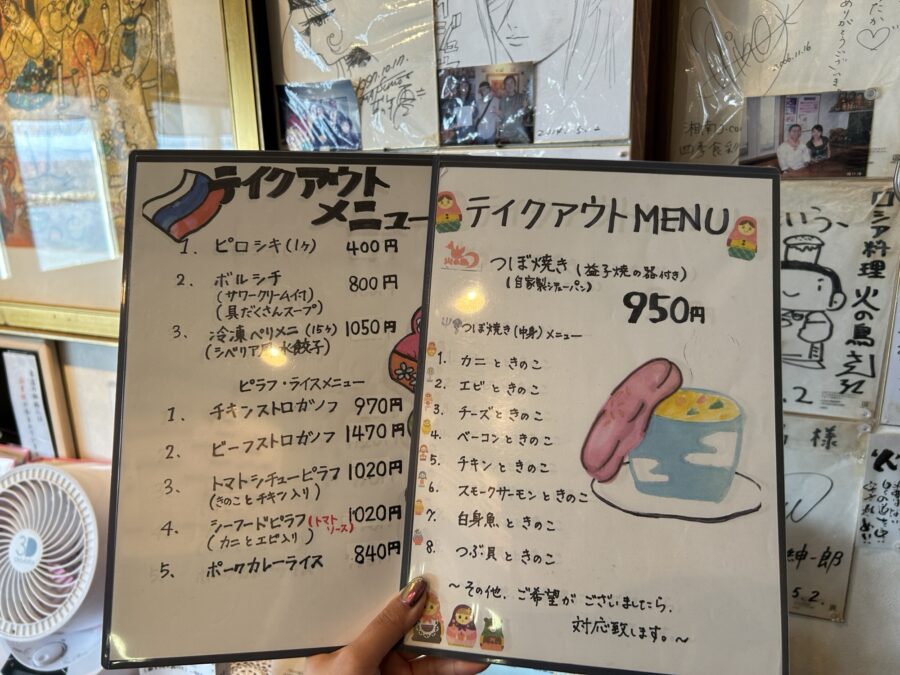 1997.10.17.
2006.11.16
ありがとう
ございます
湘南
ロシア料理 火の鳥さん江
様
紳一郎
テイクアウト
メニュー
1. ピロシキ(1ヶ) 400円
2. ボルシチ 800円
(サワークリーム付)
(具だくさんスープ)
3. 冷凍ペリメニ(15ヶ) 1050円
(シベリア風水餃子)
ピラフ・ライスメニュー
1. チキンストロガノフ 970円
2. ビーフストロガノフ 1470円
3. トマトシチューピラフ 1020円
(きのことチキン入り)
4. シーフードピラフ(トマトソース) 1020円
(カニとエビ入り)
5. ポークカレーライス 840円
テイクアウトMENU
つぼ焼き(益子焼の器付き)
950円
つぼ焼き(中身)メニュー
1. カニときのこ
2. エビときのこ
3. チーズときのこ
4. ベーコンときのこ
5. チキンときのこ
6. スモークサーモンときのこ
7. 白身魚ときのこ
8. つぶ貝ときのこ
~その他、ご希望がございましたら、
対応致します。~